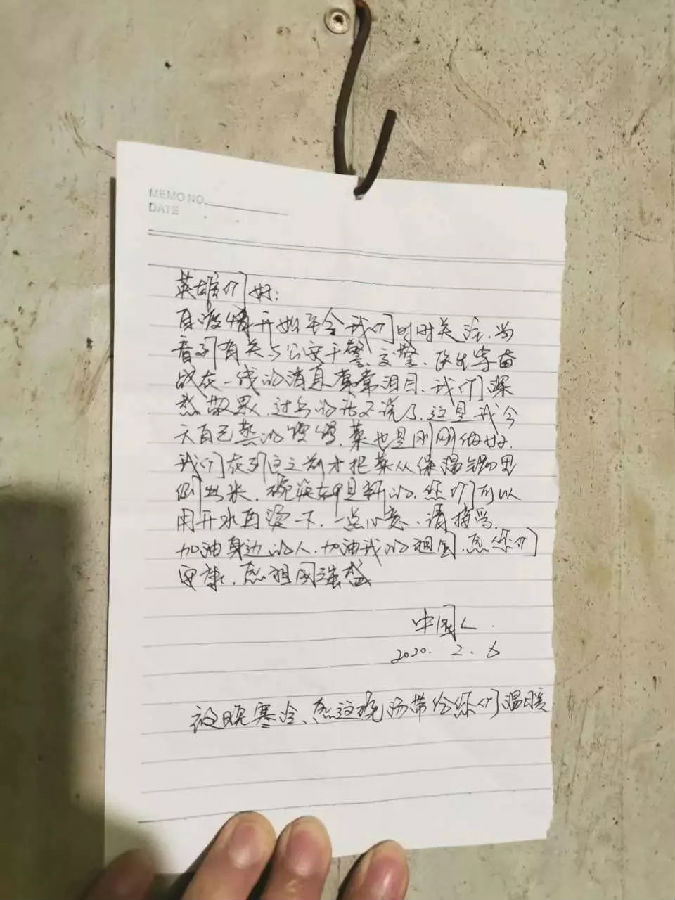 MEMO NO.
DATE
英雄们好:
自疫情开始至今我们时时关注,当
看到有关与公安干警,交警,医生等奋
战在一线的消息常常泪目,我们深
感敬畏,过多的话不说了,这是我今
天自己蒸的馒头,菜也是刚刚做好,
我们在到这之前才把菜从保温锅里
倒出来,碗筷都是新的,您们可以
用开水再烫一下,一点心意,请接受,
加油身边的人,加油我的祖国,愿您们
安康,愿祖国强盛
中国人
2020. 2. 6
夜晚寒冷,愿这碗汤带给您们温暖